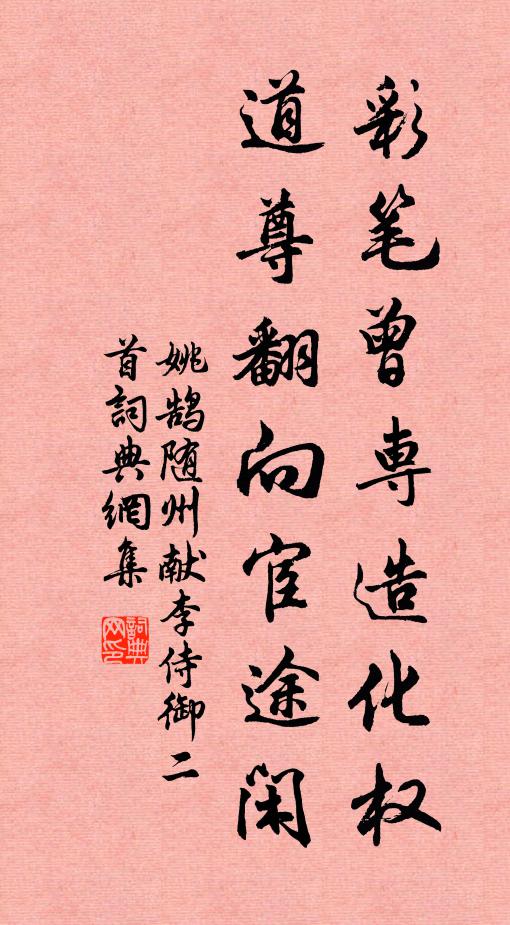 彩笔曾専造化权
道尊翻向宦途闲
姚鹄随州献李侍御二
首詞典網集
詞典网印